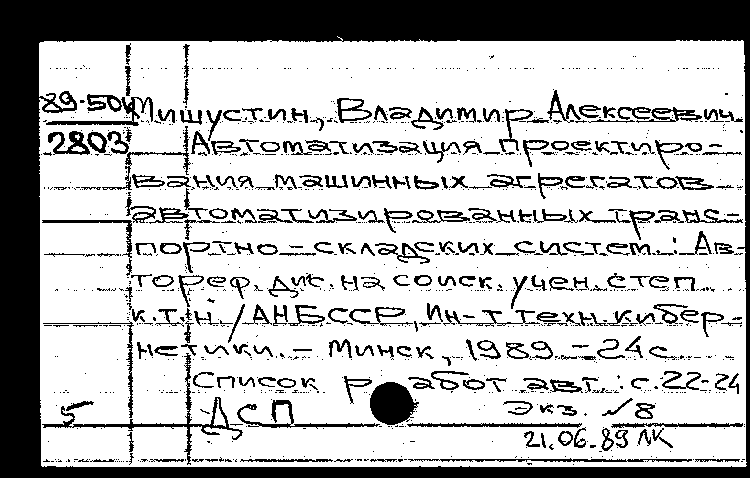 89-50к Мишустин, Владимир Алексеевич
2803 Автоматизация проектиро-
вания машинных агрегатов
автоматизированных транс-
портно-складских систем.: Ав-
тореф. дис. на соиск. учен. степ
к.т.н. / АНБССР, Ин-т техн. кибер-
нетики. - Минск, 1989. - 24 с
Список работ авт.: с. 22-24
5 ДСП Экз. №8
21.06.89 ЛК